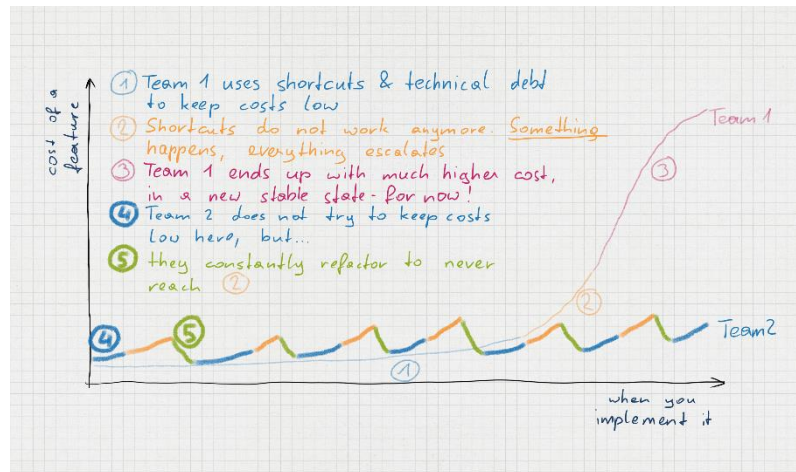 cost of a
feature
① Team 1 uses shortcuts & technical debt
to keep costs low
② Shortcuts do not work anymore. Something
happens, everything escalates
③ Team 1 ends up with much higher cost,
in a new stable state - for now!
④ Team 2 does not try to keep costs
low here, but...
⑤ they constantly refactor to never
reach ②
Team 1
③
②
④
⑤
Team2
①
when you
implement it